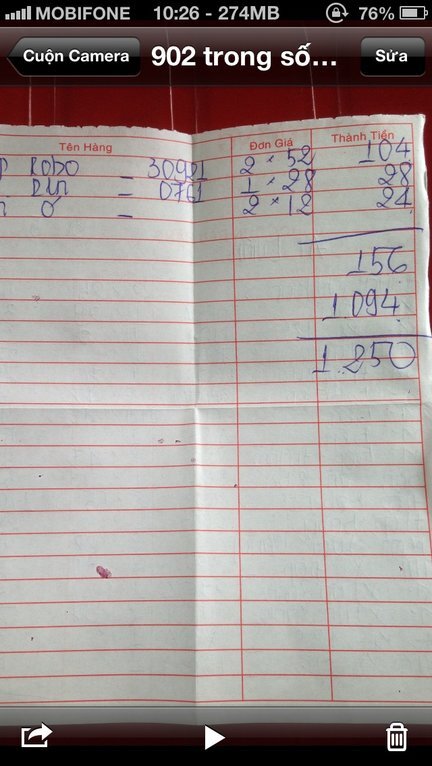 MOBIFONE 10:26 - 274MB 76%
Cuộn Camera 902 trong số... Sửa
Tên Hàng Đơn Giá Thành Tiền
ROBO 30921 2 × 52 104
= 0761 1 × 28 28
= 2 × 12 24
156
1.094
1.250